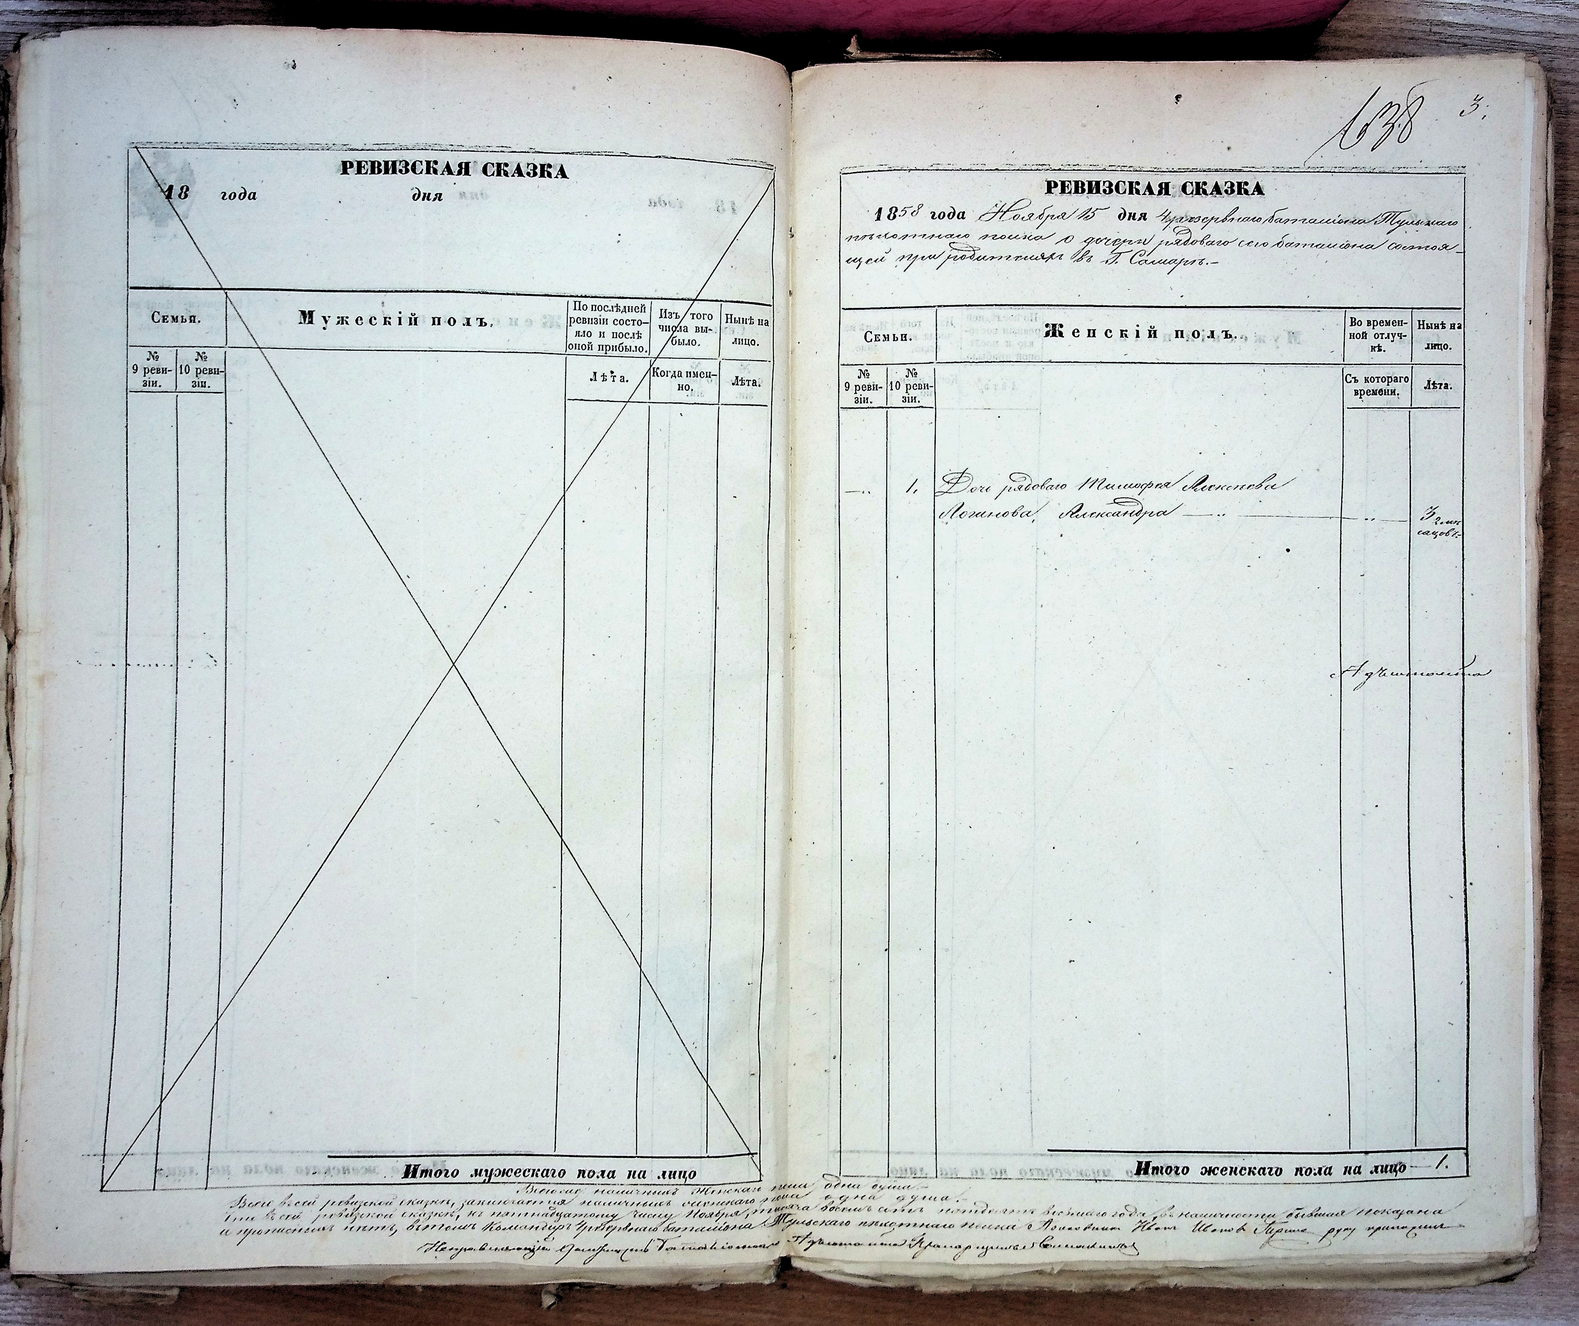 РЕВИЗСКАЯ СКАЗКА
18 года дня
Семьи.
Мужескій полъ.
По послѣдней ревизіи состояло и послѣ оной прибыло.
Изъ того числа выбыло.
Нынѣ на лицо.
№ 9 ревизіи.
№ 10 ревизіи.
Лѣта.
Когда именно.
Лѣта.
Итого мужескаго пола на лицо
138 3.
РЕВИЗСКАЯ СКАЗКА
1858 года Ноября 15 дня 4 резервнаго баталіона Тульскаго
пѣхотнаго полка о дочери рядоваго сего баталіона состоя-
щей при родителяхъ въ Г. Самарѣ.-
Семьи.
Женскій полъ.
Во временной отлучкѣ.
Нынѣ на лицо.
№ 9 ревизіи.
№ 10 ревизіи.
Съ котораго времени.
Лѣта.
1. Дочь рядоваго Тимофея Алексѣева
Логинова, Александра 3
Адъютантъ
Итого женскаго пола на лицо 1.
наличныхъ женскаго пола одна душа.-
Всего въ сей ревизской сказкѣ, наличныхъ женскаго пола одна душа.
сей ревизской сказкѣ, къ пятнадцатому числу Ноября, тысяча восемь сотъ пятьдесятъ восьмаго года въ наличности бывшая показана
Командиръ 4 резервнаго баталіона Тульскаго пѣхотнаго полка руку приложилъ